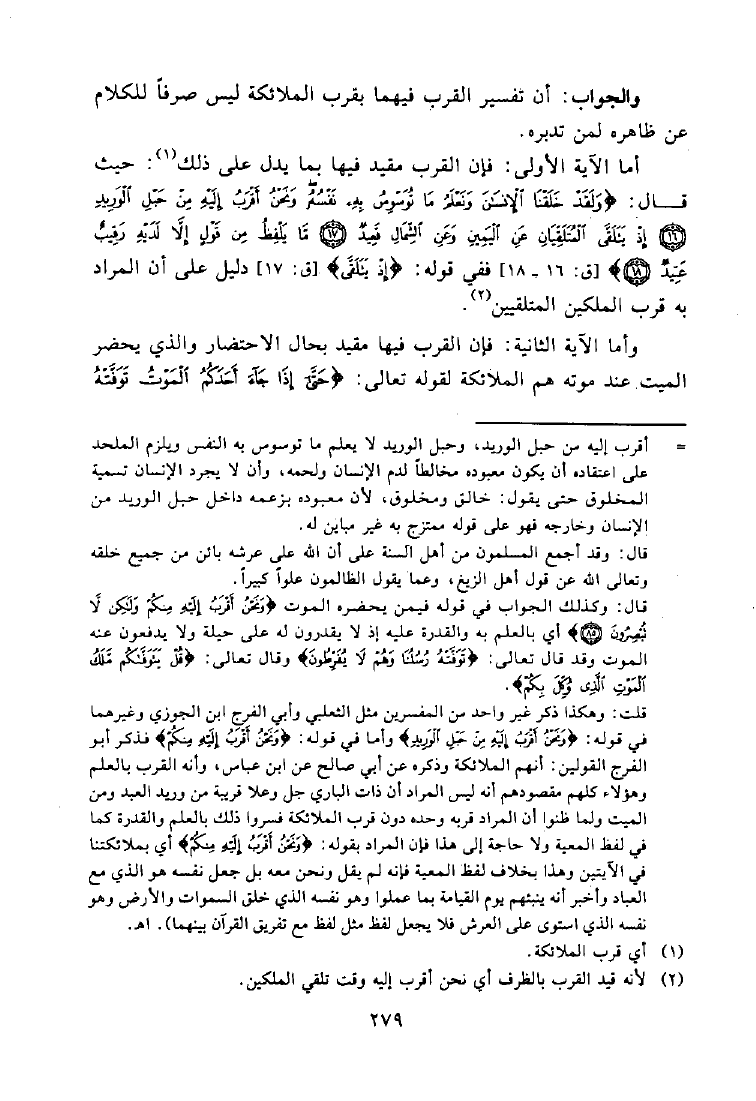 والجواب: أن تفسير القرب فيهما بقرب الملائكة ليس صرفاً للكلام
عن ظاهره لمن تدبره.
أما الآية الأولى: فإن القرب مقيد فيها بما يدل على ذلك(١): حيث
قــال: ﴿وَلَقَدْ خَلَقْنَا ٱلْإِنسَٰنَ وَنَعْلَمُ مَا تُوَسْوِسُ بِهِۦ نَفْسُهُۥ ۖ وَنَحْنُ أَقْرَبُ إِلَيْهِ مِنْ حَبْلِ ٱلْوَرِيدِ
(١٦) إِذْ يَتَلَقَّى ٱلْمُتَلَقِّيَانِ عَنِ ٱلْيَمِينِ وَعَنِ ٱلشِّمَالِ قَعِيدٌ (١٧) مَّا يَلْفِظُ مِن قَوْلٍ إِلَّا لَدَيْهِ رَقِيبٌ
عَتِيدٌ (١٨)﴾ [ق: ١٦ ـ ١٨] ففي قوله: ﴿إِذْ يَتَلَقَّى﴾ [ق: ١٧] دليل على أن المراد
به قرب الملكين المتلقيين(٢).
وأما الآية الثانية: فإن القرب فيها مقيد بحال الاحتضار والذي يحضر
الميت عند موته هم الملائكة لقوله تعالى: ﴿حَتَّىٰٓ إِذَا جَآءَ أَحَدَكُمُ ٱلْمَوْتُ تَوَفَّتْهُ
= أقرب إليه من حبل الوريد، وحبل الوريد لا يعلم ما توسوس به النفس ويلزم الملحد
على اعتقاده أن يكون معبوده مخالطاً لدم الإنسان ولحمه، وأن لا يجرد الإنسان تسمية
المخلوق حتى يقول: خالق ومخلوق، لأن معبوده بزعمه داخل حبل الوريد من
الإنسان وخارجه فهو على قوله ممتزج به غير مباين له.
قال: وقد أجمع المسلمون من أهل السنة على أن الله على عرشه بائن من جميع خلقه
وتعالى الله عن قول أهل الزيغ، وعما يقول الظالمون علواً كبيراً.
قال: وكذلك الجواب في قوله فيمن يحضره الموت ﴿وَنَحْنُ أَقْرَبُ إِلَيْهِ مِنكُمْ وَلَٰكِن لَّا
تُبْصِرُونَ (٨٥)﴾ أي بالعلم به والقدرة عليه إذ لا يقدرون له على حيلة ولا يدفعون عنه
الموت وقد قال تعالى: ﴿تَوَفَّتْهُ رُسُلُنَا وَهُمْ لَا يُفَرِّطُونَ﴾ وقال تعالى: ﴿قُلْ يَتَوَفَّىٰكُم مَّلَكُ
ٱلْمَوْتِ ٱلَّذِى وُكِّلَ بِكُمْ﴾.
قلت: وهكذا ذكر غير واحد من المفسرين مثل الثعلبي وأبي الفرج ابن الجوزي وغيرهما
في قوله: ﴿وَنَحْنُ أَقْرَبُ إِلَيْهِ مِنْ حَبْلِ ٱلْوَرِيدِ﴾ وأما في قوله: ﴿وَنَحْنُ أَقْرَبُ إِلَيْهِ مِنكُمْ﴾ فذكر أبو
الفرج القولين: أنهم الملائكة وذكره عن أبي صالح عن ابن عباس، وأنه القرب بالعلم
وهؤلاء كلهم مقصودهم أنه ليس المراد أن ذات الباري جل وعلا قريبة من وريد العبد ومن
الميت ولما ظنوا أن المراد قربه وحده دون قرب الملائكة فسروا ذلك بالعلم والقدرة كما
في لفظ المعية ولا حاجة إلى هذا فإن المراد بقوله: ﴿وَنَحْنُ أَقْرَبُ إِلَيْهِ مِنكُمْ﴾ أي بملائكتنا
في الآيتين وهذا بخلاف لفظ المعية فإنه لم يقل ونحن معه بل جعل نفسه هو الذي مع
العباد وأخبر أنه ينبئهم يوم القيامة بما عملوا وهو نفسه الذي خلق السموات والأرض وهو
نفسه الذي استوى على العرش فلا يجعل لفظ مثل لفظ مع تفريق القرآن بينهما). اهـ.
(١) أي قرب الملائكة.
(٢) لأنه قيد القرب بالظرف أي نحن أقرب إليه وقت تلقي الملكين.
٢٧٩